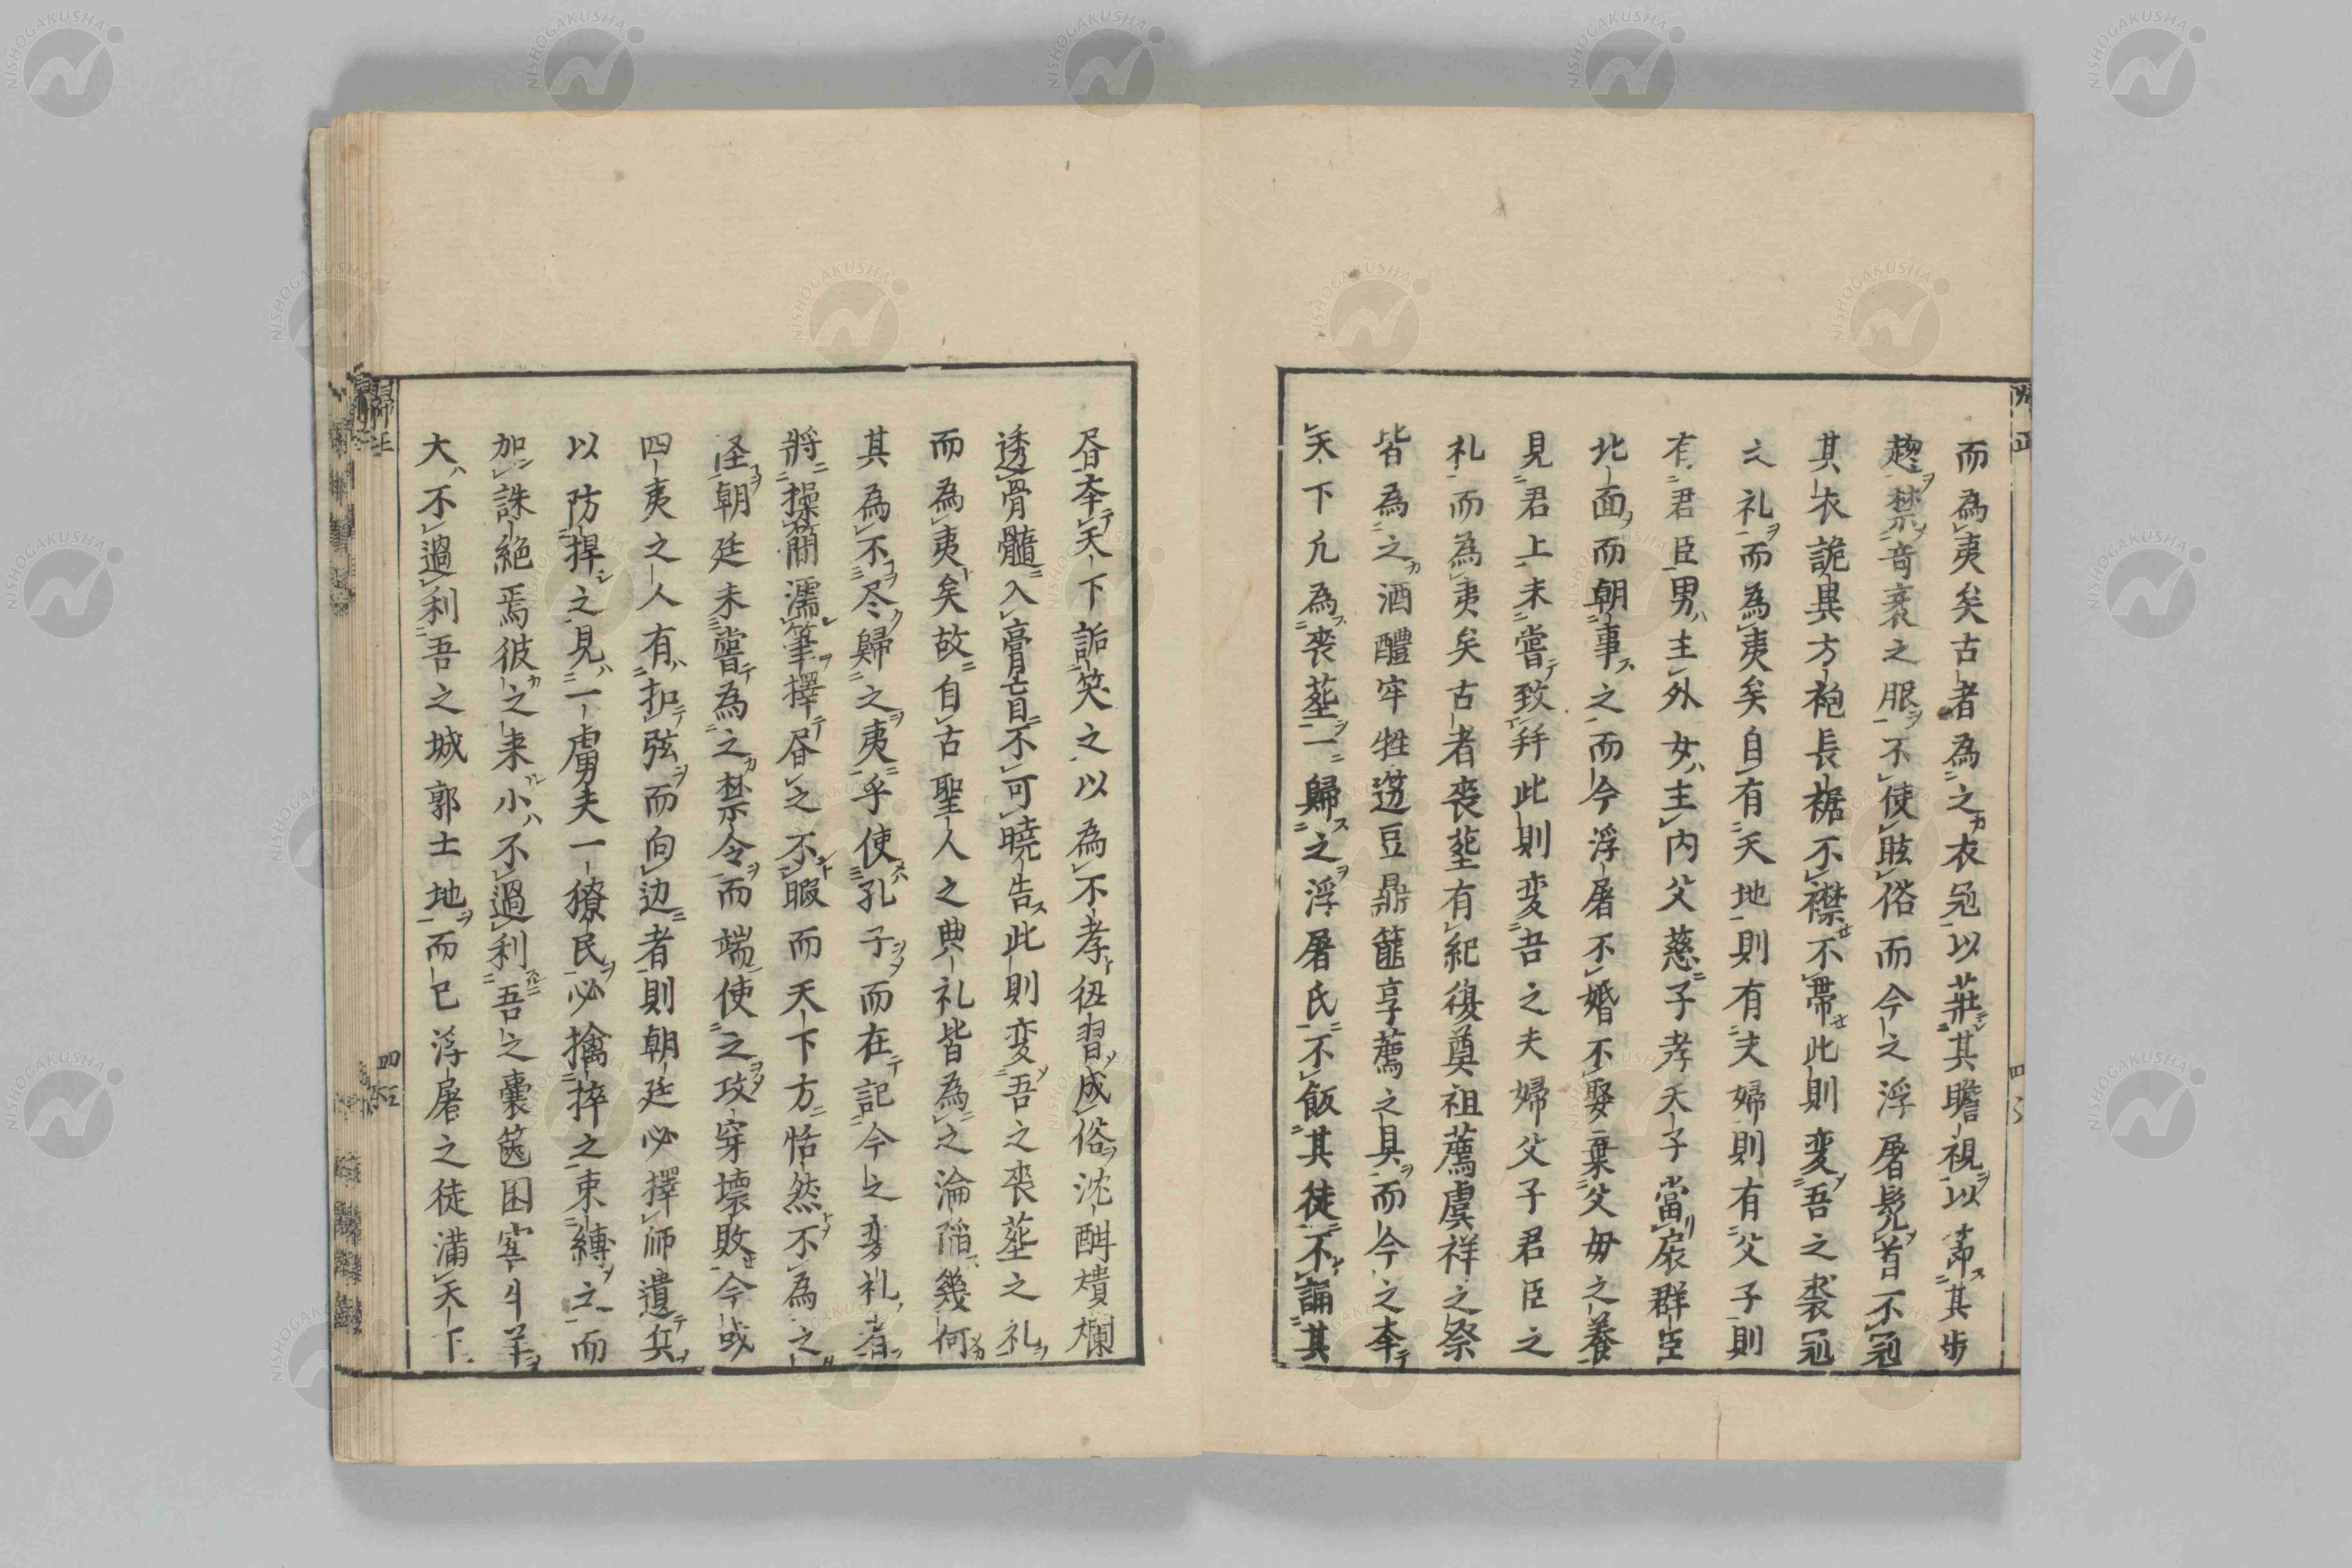 而為夷矣古者為之衣冠以莊其瞻視以節其步
趨禁奇衺之服不使眩俗而今之浮屠髡首不冠
其衣詭異方袍長裾不襟不帶此則变吾之裘冠
之礼而為夷矣自有天地則有夫婦則有父子則
有君臣男主外女主内父慈子孝天子當扆群臣
北面而朝事之而今浮屠不婚不娶棄父毋之養
見君上未嘗致拜此則变吾之夫婦父子君臣之
礼而為夷矣古者喪葬有紀復奠祖薦虞祥之祭
皆為之酒醴牢牲籩豆鼎篚享薦之具而今之夲
天下凢為喪葬一歸之浮屠氏不飯其徒不誦其
昏夲天下詬笑之以為不孝狃習成俗沈酣
透骨髓入膏肓不可曉告此則变吾之喪葬之礼
而為夷矣故自古聖人之典礼皆為之淪陷幾何
其為不尽歸之夷乎使孔子而在記今之变礼者
將操簡濡筆擇昏之不暇而天下方恬然不為之
怪朝廷未嘗為之禁令而端使之攻穿壊敗今或
四夷之人有扣弦而向边者則朝廷必擇師遣兵
以防捍之見一虜夫一獠民必擒捽之束縛之而
加誅絶焉彼之来小不過利吾之囊篋囷窖斗羊
大不過利吾之城郭土地而已浮屠之徒滿天下
歸正
四
NISHOGAKUSHA